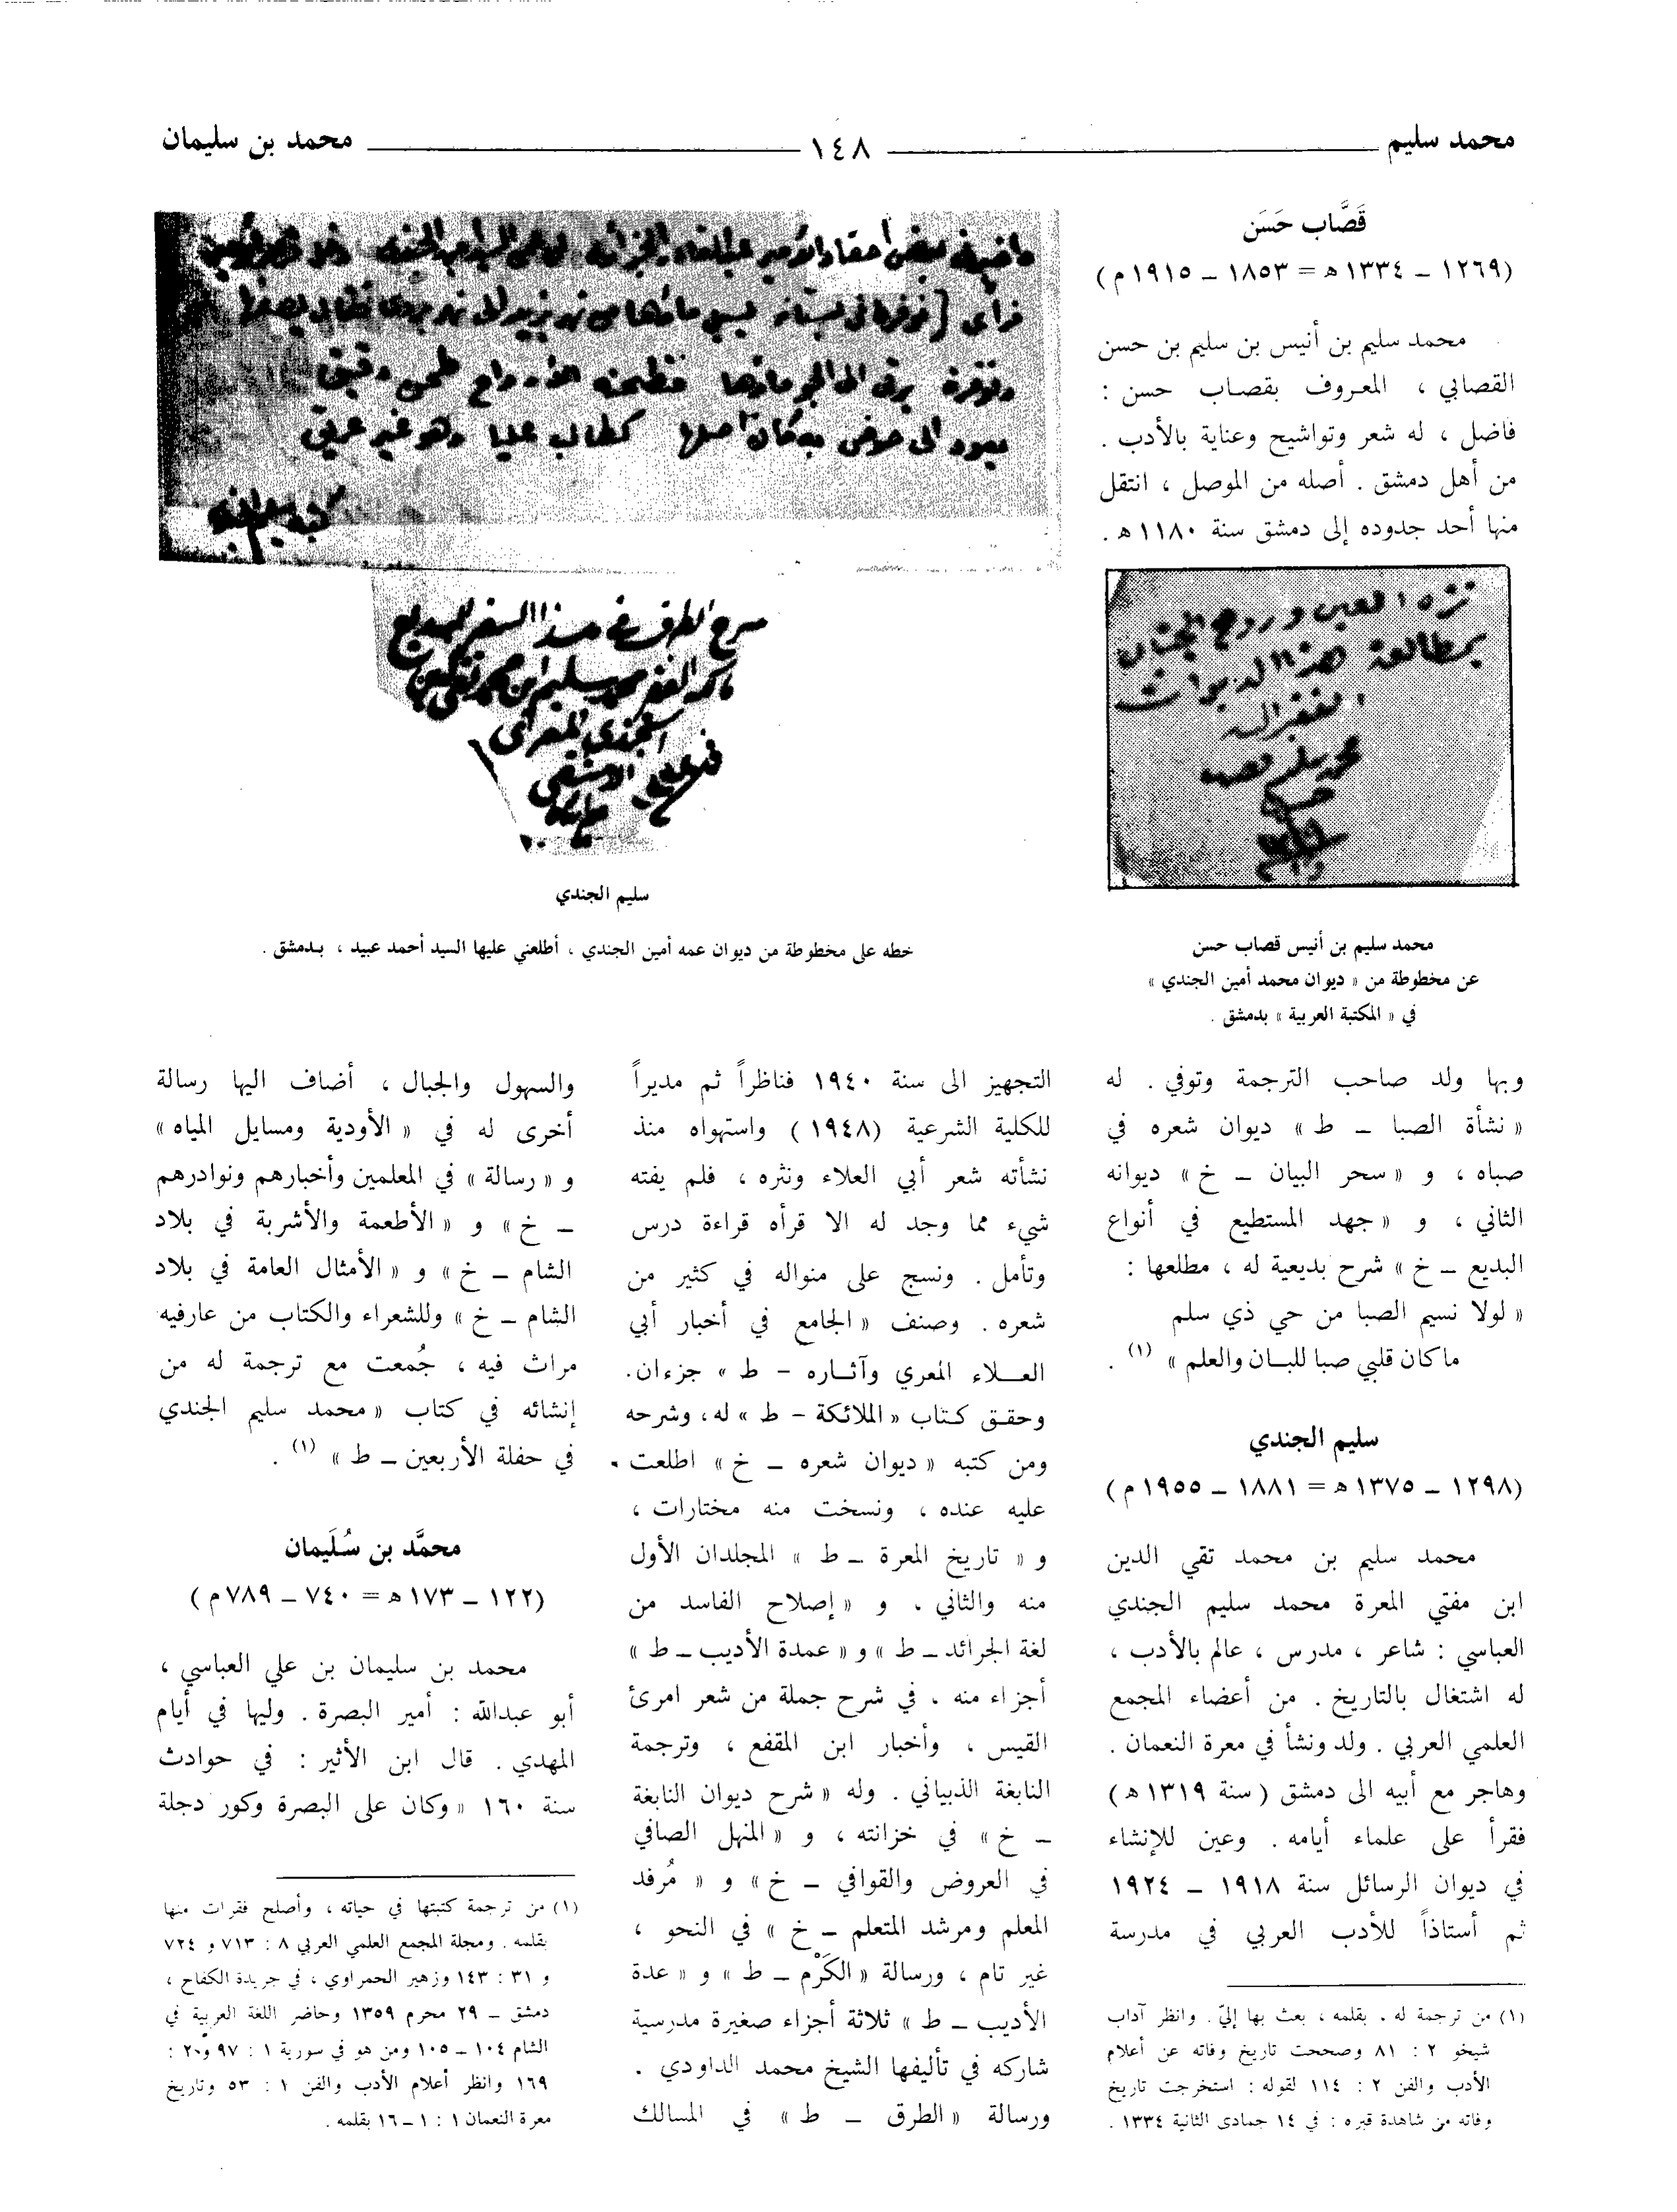 محمد سليم ١٤٨ محمد بن سليمان
قَصَّاب حَسَن
(١٢٦٩ – ١٣٣٤ ه = ١٨٥٣ – ١٩١٥ م)
محمد سليم بن أنيس بن سليم بن حسن
القصابي ، المعروف بقصاب حسن :
فاضل ، له شعر وتواشيح وعناية بالأدب .
من أهل دمشق . أصله من الموصل ، انتقل
منها أحد جدوده إلى دمشق سنة ١١٨٠ ه .
نزه العين وروح الجنان
بمطالعة هذا الديوان
الفقير اليه
محمد سليم قصاب
حسن
محمد سليم بن أنيس قصاب حسن
عن مخطوطة من « ديوان محمد أمين الجندي »
في « المكتبة العربية » بدمشق .
وبها ولد صاحب الترجمة وتوفي . له
« نشأة الصبا – ط » ديوان شعره في
صباه ، و « سحر البيان – خ » ديوانه
الثاني ، و « جهد المستطيع في أنواع
البديع – خ » شرح بديعية له ، مطلعها :
« لولا نسيم الصبا من حي ذي سلم
ماكان قلبي صبا للبان والعلم » (١) .
سليم الجندي
(١٢٩٨ – ١٣٧٥ ه = ١٨٨١ – ١٩٥٥ م)
محمد سليم بن محمد تقي الدين
ابن مفتي المعرة محمد سليم الجندي
العباسي : شاعر ، مدرس ، عالم بالأدب ،
له اشتغال بالتاريخ . من أعضاء المجمع
العلمي العربي . ولد ونشأ في معرة النعمان .
وهاجر مع أبيه الى دمشق ( سنة ١٣١٩ ه )
فقرأ على علماء أيامه . وعين للإنشاء
في ديوان الرسائل سنة ١٩١٨ – ١٩٢٤
ثم أستاذاً للأدب العربي في مدرسة
(١) من ترجمة له . بقلمه ، بعث بها إليّ . وانظر آداب
شيخو ٢ : ٨١ وصححت تاريخ وفاته عن أعلام
الأدب والفن ٢ : ١١٤ لقوله : استخرجت تاريخ
وفاته من شاهدة قبره : في ١٤ جمادى الثانية ١٣٣٤ .
سرح الطرف في هذا السفر البديع
الفقير محمد سليم ابن محمد تقي الدين
الجندي المعري
الدمشقي
سليم الجندي
خطه على مخطوطة من ديوان عمه أمين الجندي ، أطلعني عليها السيد أحمد عبيد ، بدمشق .
التجهيز الى سنة ١٩٤٠ فناظراً ثم مديراً
للكلية الشرعية (١٩٤٨) واستهواه منذ
نشأته شعر أبي العلاء ونثره ، فلم يفته
شيء مما وجد له الا قرأه قراءة درس
وتأمل . ونسج على منواله في كثير من
شعره . وصنف « الجامع في أخبار أبي
العلاء المعري وآثاره – ط » جزءان .
وحقق كتاب « الملائكة – ط » له ، وشرحه
ومن كتبه « ديوان شعره – خ » اطلعت
عليه عنده ، ونسخت منه مختارات ،
و « تاريخ المعرة – ط » المجلدان الأول
منه والثاني ، و « إصلاح الفاسد من
لغة الجرائد – ط » و « عمدة الأديب – ط »
أجزاء منه ، في شرح جملة من شعر امرئ
القيس ، وأخبار ابن المقفع ، وترجمة
النابغة الذبياني . وله « شرح ديوان النابغة
– خ » في خزانته ، و « المنهل الصافي
في العروض والقوافي – خ » و « مُرفد
المعلم ومرشد المتعلم – خ » في النحو ،
غير تام ، ورسالة « الكَرْم – ط » و « عدة
الأديب – ط » ثلاثة أجزاء صغيرة مدرسية
شاركه في تأليفها الشيخ محمد الداودي .
ورسالة « الطرق – ط » في المسالك
والسهول والجبال ، أضاف اليها رسالة
أخرى له في « الأودية ومسايل المياه »
و « رسالة » في المعلمين وأخبارهم ونوادرهم
– خ » و « الأطعمة والأشربة في بلاد
الشام – خ » و « الأمثال العامة في بلاد
الشام – خ » وللشعراء والكتاب من عارفيه
مراث فيه ، جُمعت مع ترجمة له من
إنشائه في كتاب « محمد سليم الجندي
في حفلة الأربعين – ط » (١) .
محمَّد بن سُلَيمان
(١٢٢ – ١٧٣ ه = ٧٤٠ – ٧٨٩ م)
محمد بن سليمان بن علي العباسي ،
أبو عبدالله : أمير البصرة . وليها في أيام
المهدي . قال ابن الأثير : في حوادث
سنة ١٦٠ « وكان على البصرة وكور دجلة
(١) من ترجمة كتبتها في حياته ، وأصلح فقرات منها
بقلمه . ومجلة المجمع العلمي العربي ٨ : ٧١٣ و ٧٢٤
و ٣١ : ١٤٣ وزهير الحمراوي ، في جريدة الكفاح ،
دمشق – ٢٩ محرم ١٣٥٩ وحاضر اللغة العربية في
الشام ١٠٤ – ١٠٥ ومن هو في سورية ١ : ٩٧ و٢٠ :
١٦٩ وانظر أعلام الأدب والفن ١ : ٥٣ وتاريخ
معرة النعمان ١ : ١ – ١٦ بقلمه .